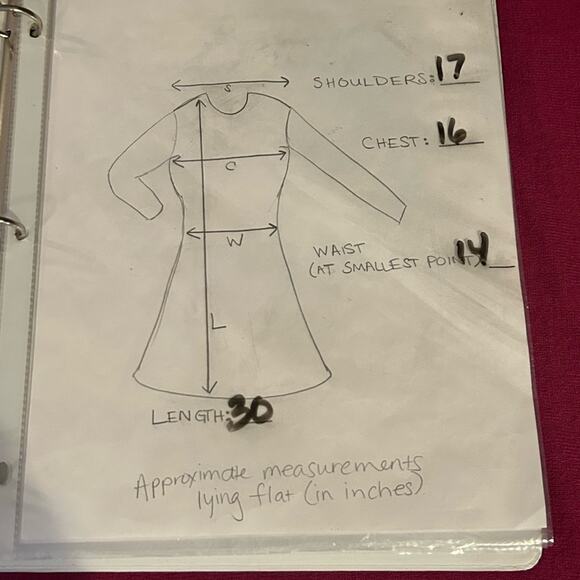 S
SHOULDERS: 17
C
CHEST: 16
W
WAIST
(AT SMALLEST POINT) 14
L
LENGTH: 30
Approximate measurements
lying flat (in inches)